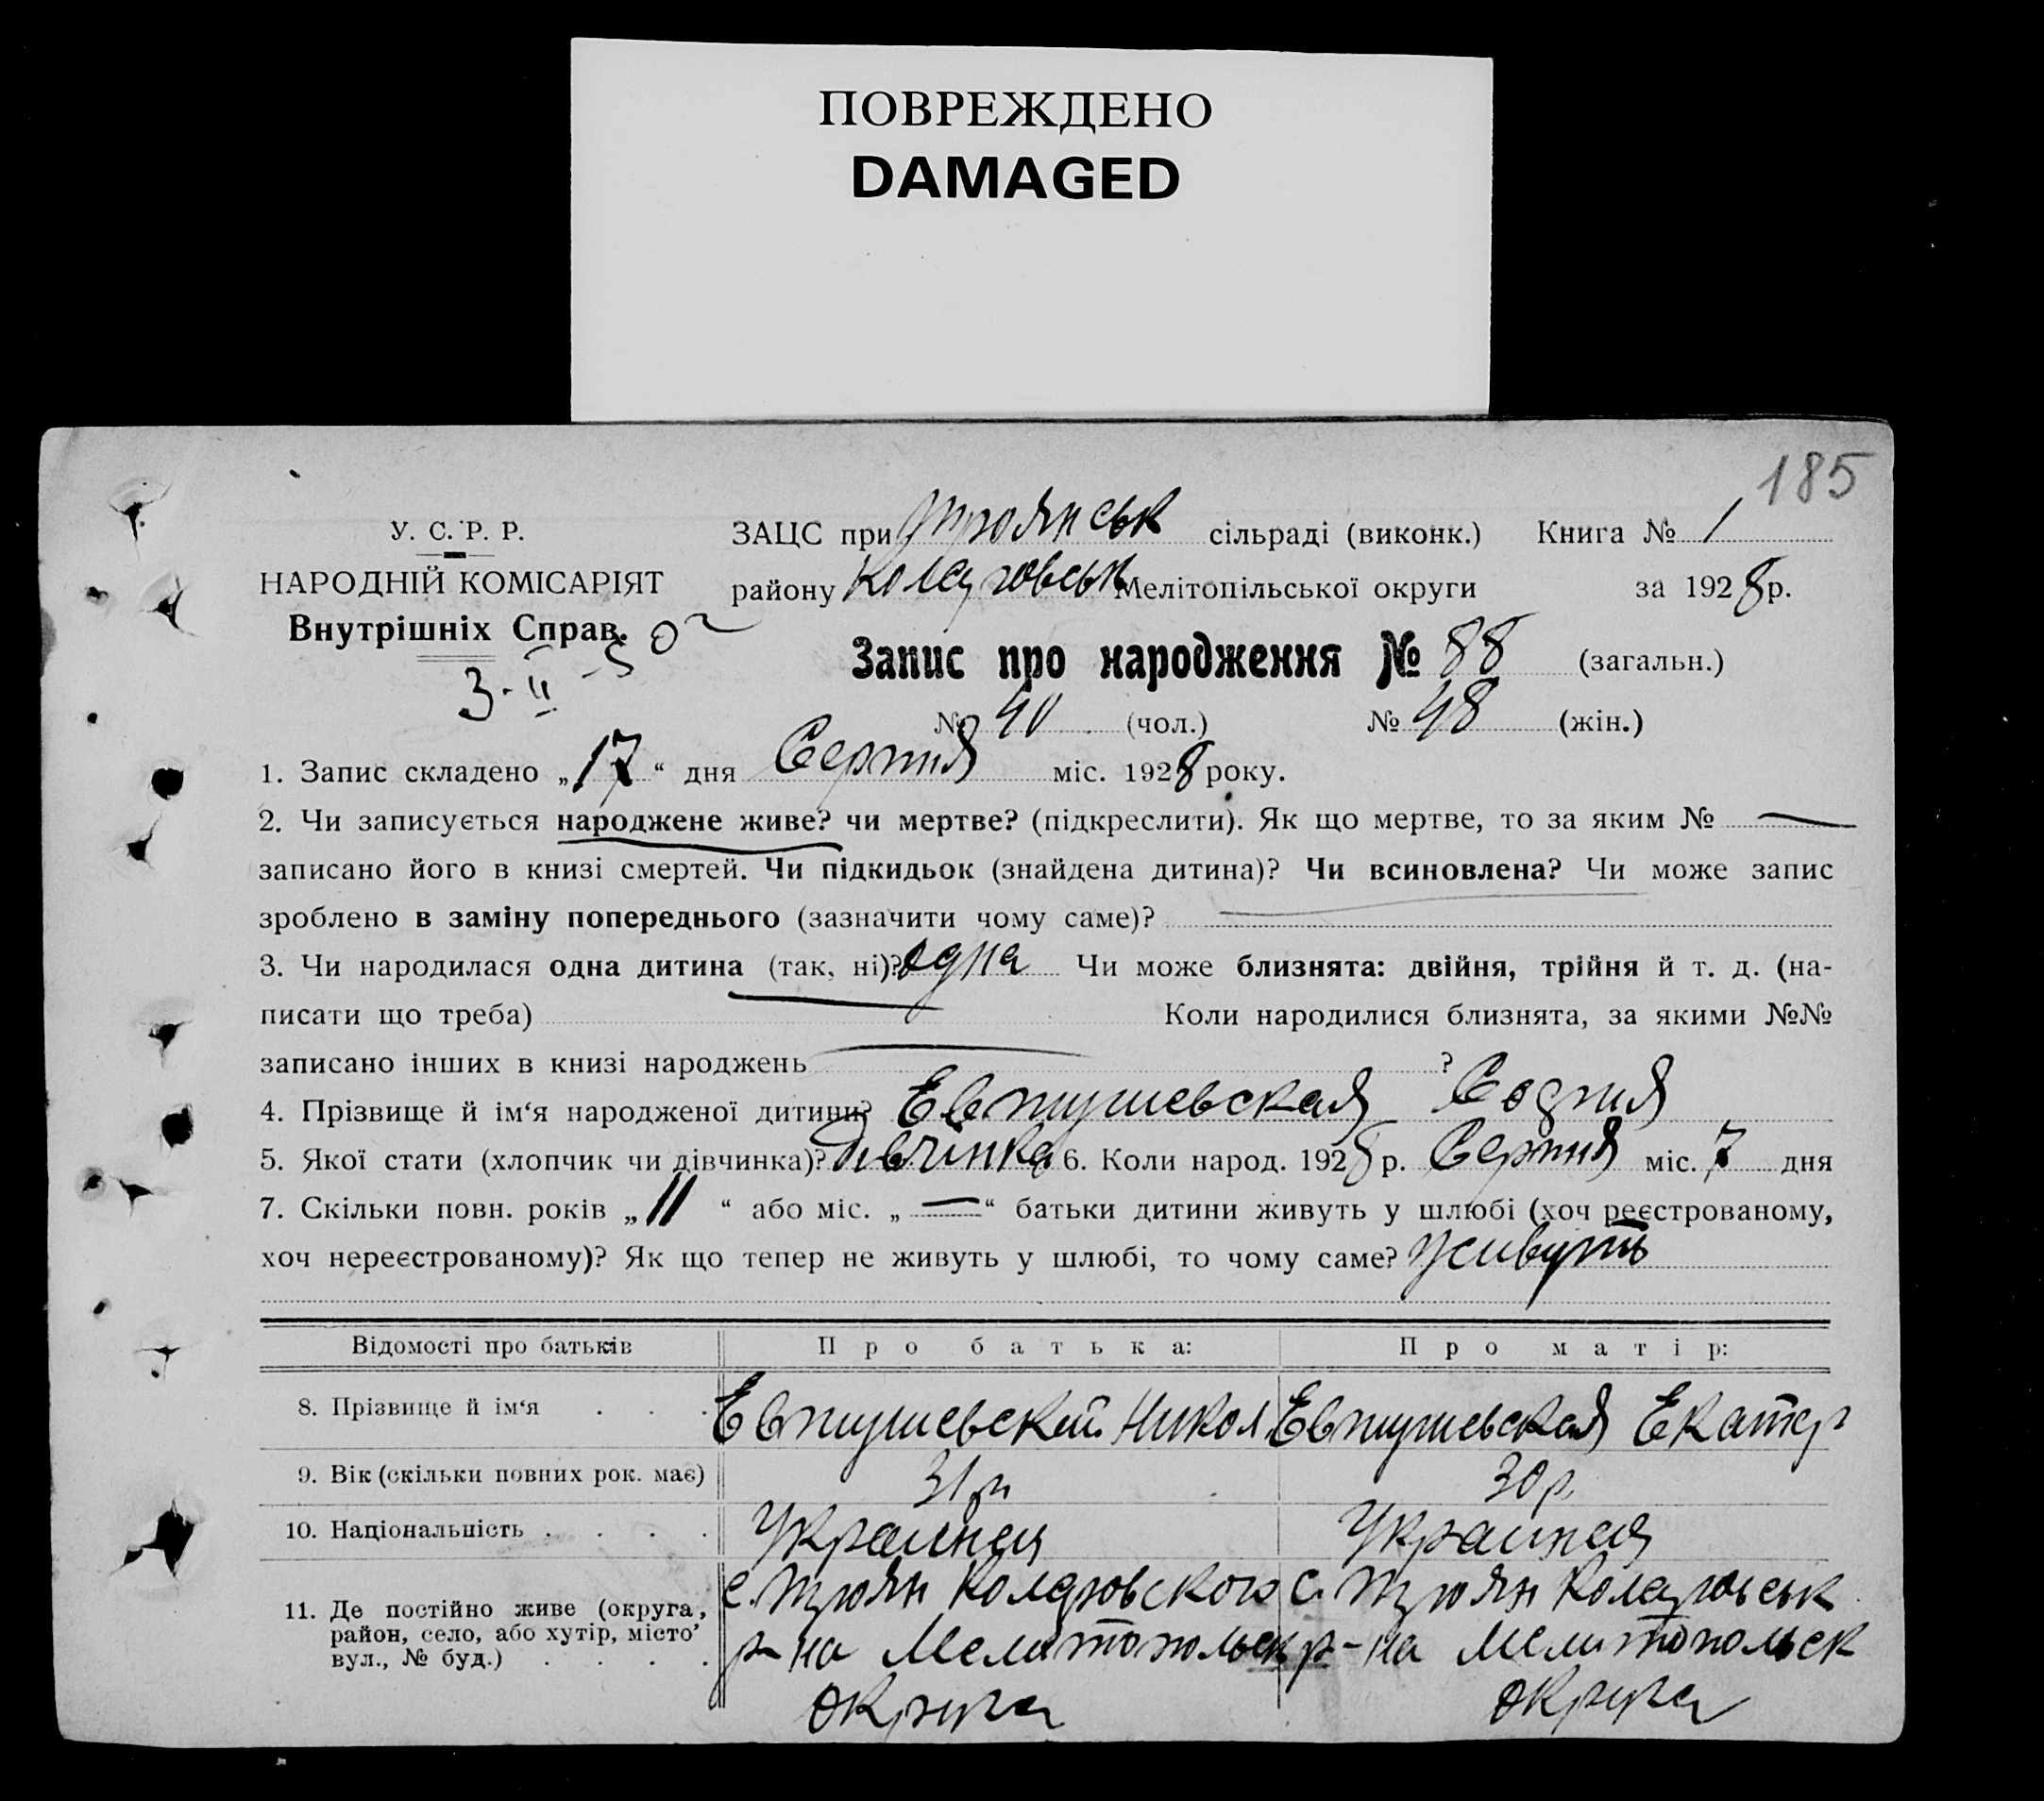 ПОВРЕЖДЕНО
DAMAGED
185
У. С. Р. Р.
НАРОДНІЙ КОМІСАРІЯТ
Внутрішніх Справ.
ЗАЦС при Троянськ сільраді (виконк.) Книга № 1
району Коларовськ Мелітопільської округи за 1928 р.
Запис про народження № 88 (загальн.)
№ 40 (чол.) № 48 (жін.)
1. Запис складено „17“ дня Серпня міс. 1928 року.
2. Чи записується народжене живе? чи мертве? (підкреслити). Як що мертве, то за яким № —
записано його в книзі смертей. Чи підкидьок (знайдена дитина)? Чи всиновлена? Чи може запис
зроблено в заміну попереднього (зазначити чому саме)?
3. Чи народилася одна дитина (так, ні)? одна Чи може близнята: двійня, трійня й т. д. (на-
писати що треба) Коли народилися близнята, за якими №№
записано інших в книзі народжень ?
4. Прізвище й ім‘я народженої дитини? Евтушевская
5. Якої стати (хлопчик чи дівчинка)? дівчінка 6. Коли народ. 1928 р. Серпня міс. 7 дня
7. Скільки повн. років „11“ або міс. „—“ батьки дитини живуть у шлюбі (хоч реєстрованому,
хоч нереєстрованому)? Як що тепер не живуть у шлюбі, то чому саме? живуть
Відомості про батьків Про батька: Про матір:
8. Прізвище й ім‘я . . . Евтушевский Никол Евтушевская Екатер
9. Вік (скільки повних рок. має) 31 р 30 р.
10. Національність . . . .
11. Де постійно живе (округа,
район, село, або хутір, місто’
вул., № буд.) . . . .
с. Троян Коларовского
р-на Мелитопольск
округа
с. Троян Коларовськ
р-на Мелитопольск
округа